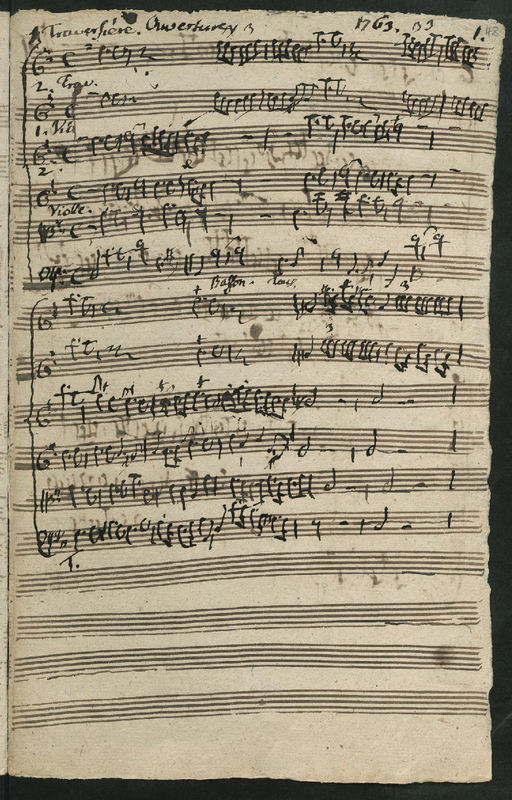 1 Traversiere. Ouverture 1763. 33 1.
2. Trav.
1. Viol
2.
Violle.
Basson.
T.